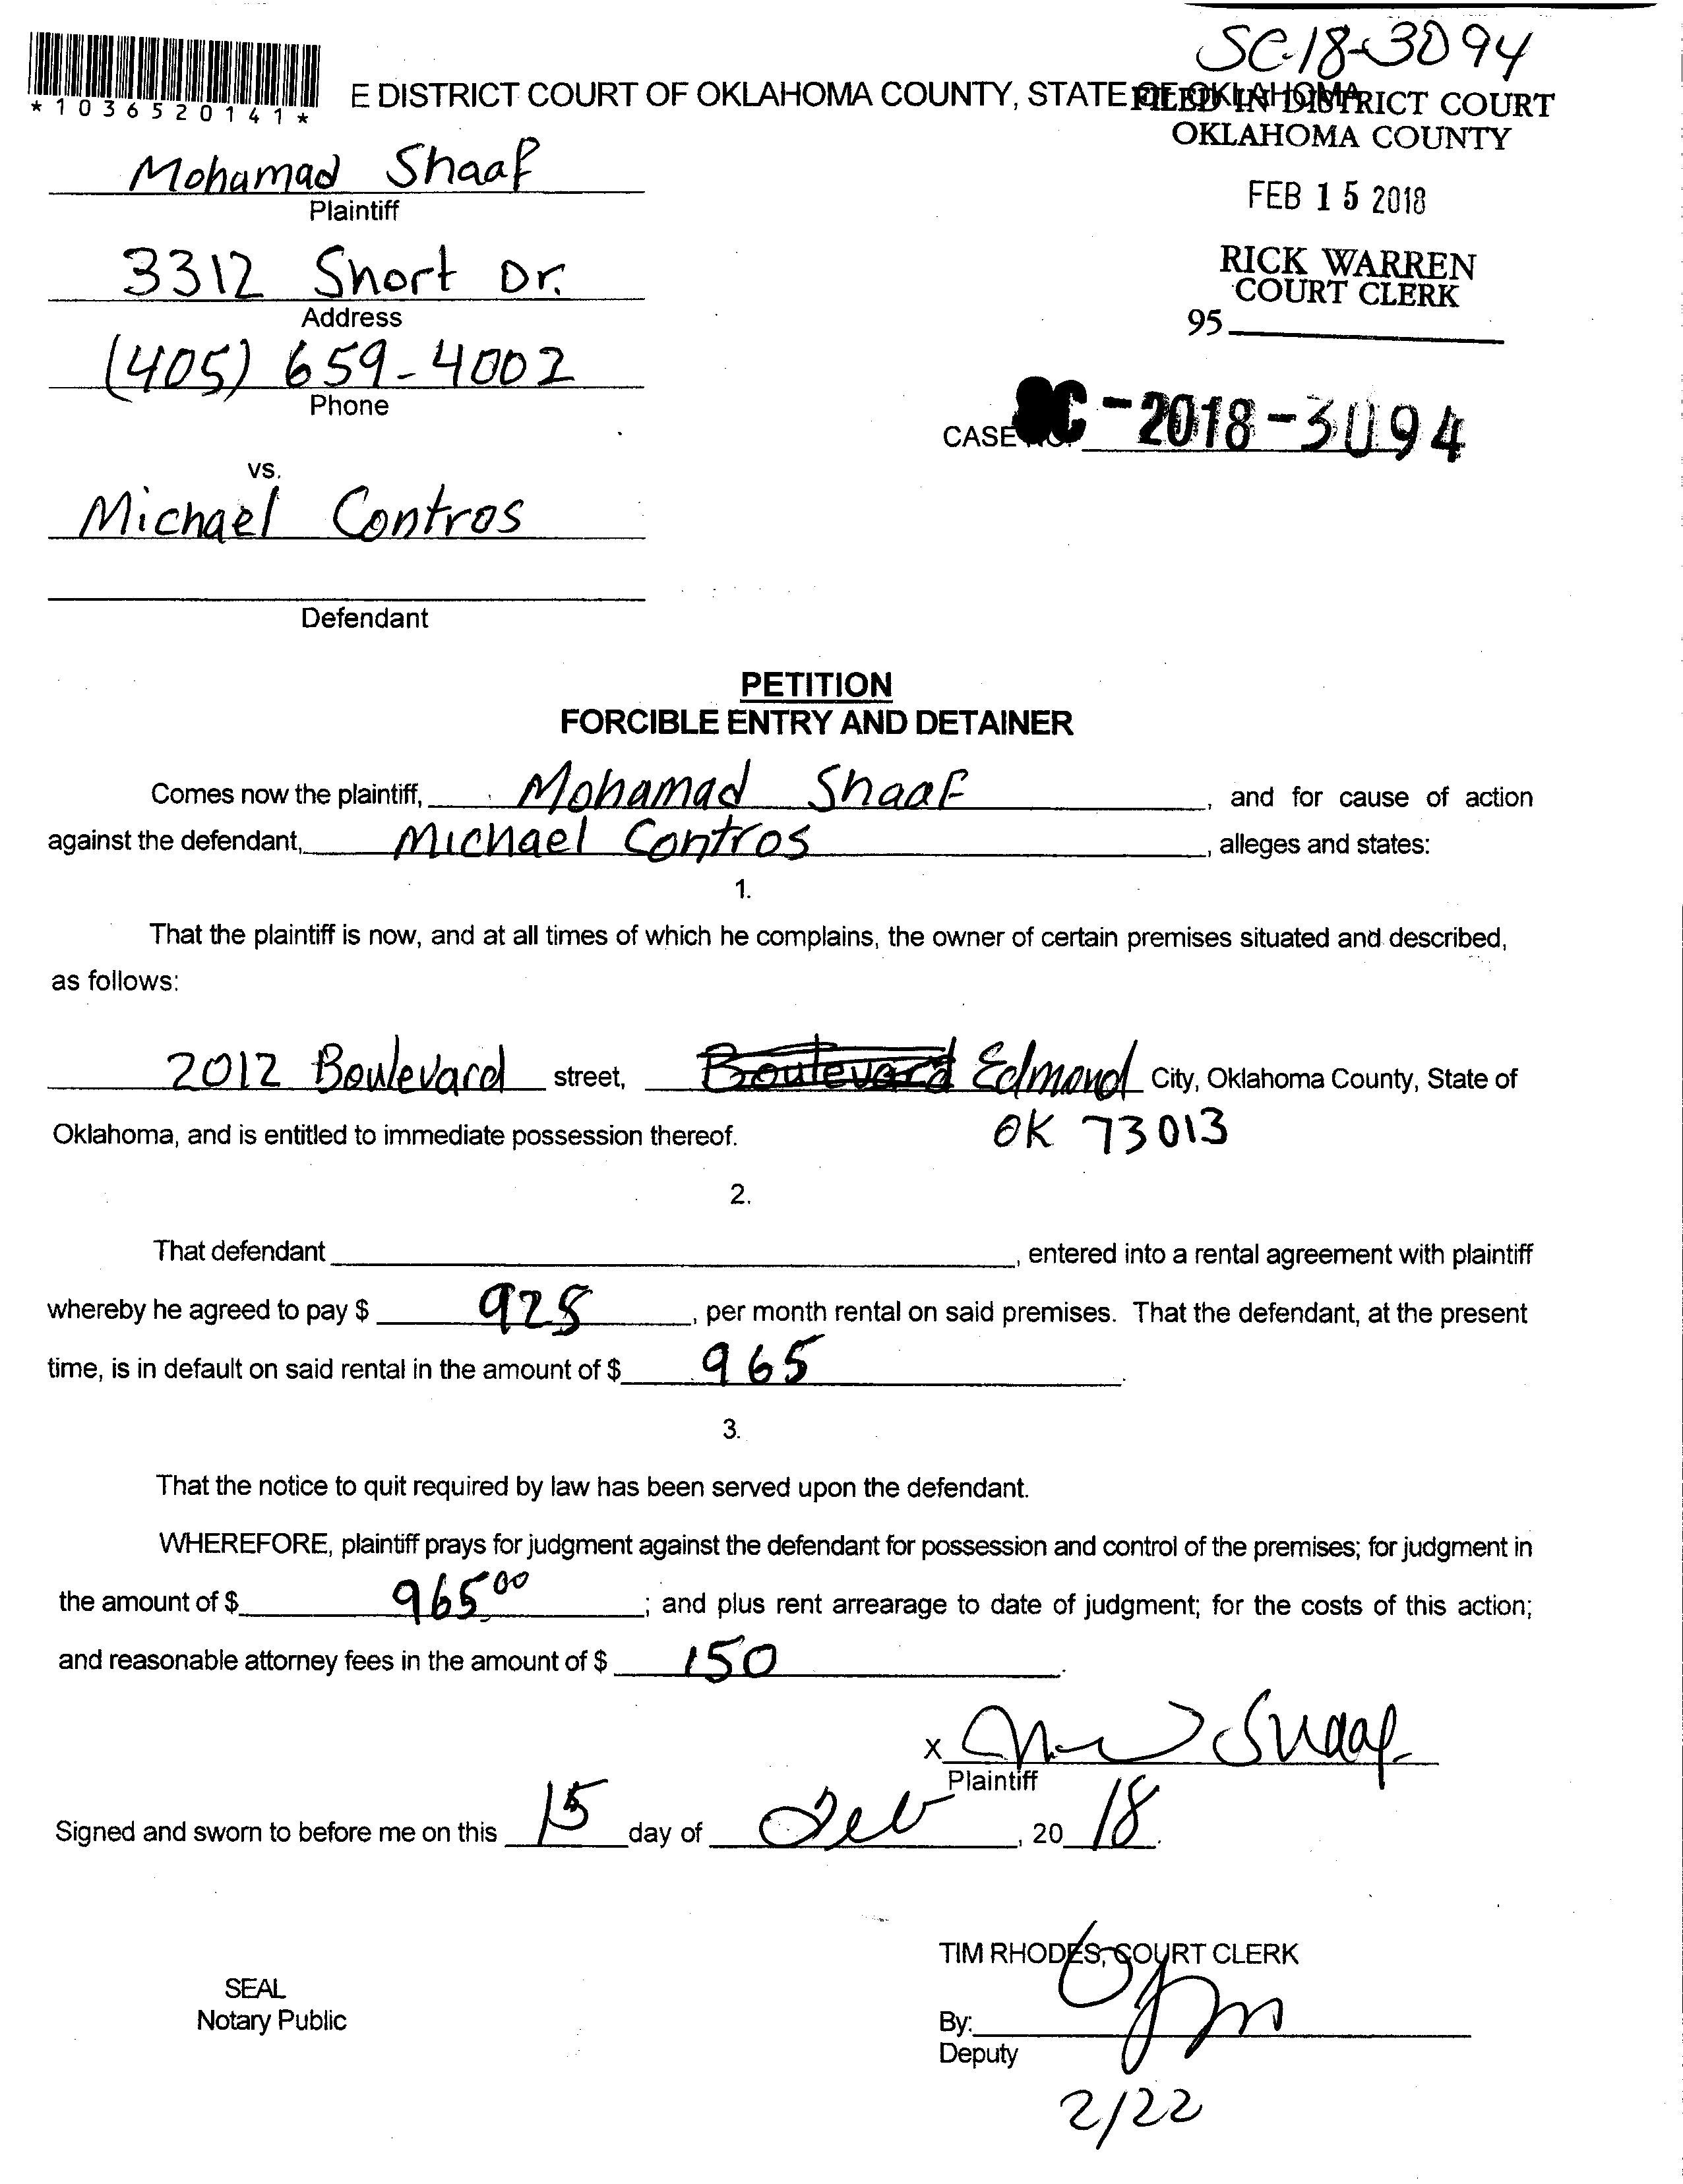 SC-18-3094
*1036520141*
E DISTRICT COURT OF OKLAHOMA COUNTY, STATE OF OKLAHOMA
FILED IN DISTRICT COURT
OKLAHOMA COUNTY
Mohamad Shaaf
Plaintiff
FEB 15 2018
3312 Short Dr.
Address
RICK WARREN
COURT CLERK
95
(405) 659-4002
Phone
CASE NO. SC-2018-3094
vs.
Michael Contros
Defendant
PETITION
FORCIBLE ENTRY AND DETAINER
Comes now the plaintiff, Mohamad Shaaf, and for cause of action
against the defendant, Michael Contros, alleges and states:
1.
That the plaintiff is now, and at all times of which he complains, the owner of certain premises situated and described,
as follows:
2012 Boulevard street, Boulevard Edmond City, Oklahoma County, State of
Oklahoma, and is entitled to immediate possession thereof. OK 73013
2.
That defendant , entered into a rental agreement with plaintiff
whereby he agreed to pay $ 925, per month rental on said premises. That the defendant, at the present
time, is in default on said rental in the amount of $ 965.
3.
That the notice to quit required by law has been served upon the defendant.
WHEREFORE, plaintiff prays for judgment against the defendant for possession and control of the premises; for judgment in
the amount of $ 965 00; and plus rent arrearage to date of judgment; for the costs of this action;
and reasonable attorney fees in the amount of $ 150.
X Shaaf
Plaintiff
Signed and sworn to before me on this 15 day of Feb, 20 18.
TIM RHODES, COURT CLERK
SEAL
Notary Public
By:
Deputy
2/22